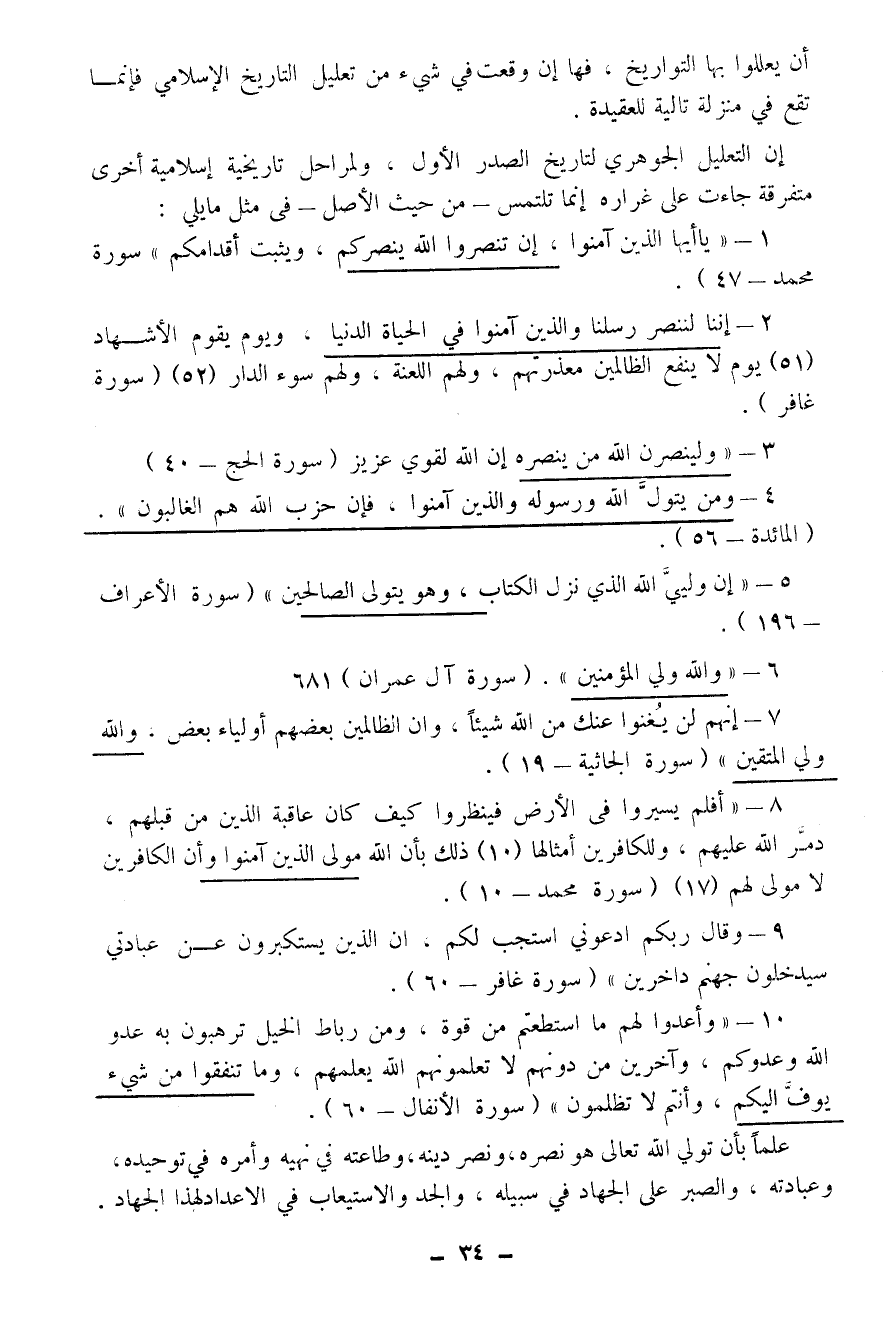 أن يعللوا بها التواريخ ، فها إن وقعت في شيء من تعليل التاريخ الإسلامي فإنمـــا
تقع في منزلة تالية للعقيدة .
إن التعليل الجوهري لتاريخ الصدر الأول ، ولمراحل تاريخية إسلامية أخرى
متفرقة جاءت على غراره إنما تلتمس – من حيث الأصل – فى مثل مايلي :
١ – « ياأيها الذين آمنوا ، إن تنصروا الله ينصركم ، ويثبت أقدامكم » سورة
محمد – ٤٧ ) .
٢ – إننا لننصر رسلنا والذين آمنوا في الحياة الدنيا ، ويوم يقوم الأشـــهاد
(٥١) يوم لا ينفع الظالمين معذرتهم ، ولهم اللعنة ، ولهم سوء الدار (٥٢) ( سورة
غافر ) .
٣ – « ولينصرن الله من ينصره إن الله لقوي عزيز ( سورة الحج – ٤٠ )
٤ – ومن يتولَّ الله ورسوله والذين آمنوا ، فإن حزب الله هم الغالبون » .
( المائدة – ٥٦ ) .
٥ – « إن ولييَّ الله الذي نزل الكتاب ، وهو يتولى الصالحين » ( سورة الأعراف
– ١٩٦ ) .
٦ – « والله ولي المؤمنين » . ( سورة آل عمران ) ٦٨١
٧ – إنهم لن يُغنوا عنك من الله شيئاً ، وان الظالمين بعضهم أولياء بعض ، والله
ولي المتقين » ( سورة الجاثية – ١٩ ) .
٨ – « أفلم يسيروا فى الأرض فينظروا كيف كان عاقبة الذين من قبلهم ،
دمَّر الله عليهم ، وللكافرين أمثالها (١٠) ذلك بأن الله مولى الذين آمنوا وأن الكافرين
لا مولى لهم (١٧) ( سورة محمد – ١٠ ) .
٩ – وقال ربكم ادعوني استجب لكم ، ان الذين يستكبرون عـــن عبادتي
سيدخلون جهنم داخرين » ( سورة غافر – ٦٠ ) .
١٠ – « وأعدوا لهم ما استطعتم من قوة ، ومن رباط الخيل ترهبون به عدو
الله وعدوكم ، وآخرين من دونهم لا تعلمونهم الله يعلمهم ، وما تنفقوا من شيء
يوفَّ اليكم ، وأنتم لا تظلمون » ( سورة الأنفال – ٦٠ ) .
علماً بأن تولي الله تعالى هو نصره ، ونصر دينه ، وطاعته في نهيه وأمره في توحيده ،
وعبادته ، والصبر على الجهاد في سبيله ، والجد والاستيعاب في الاعداد لهذا الجهاد .
– ٣٤ –